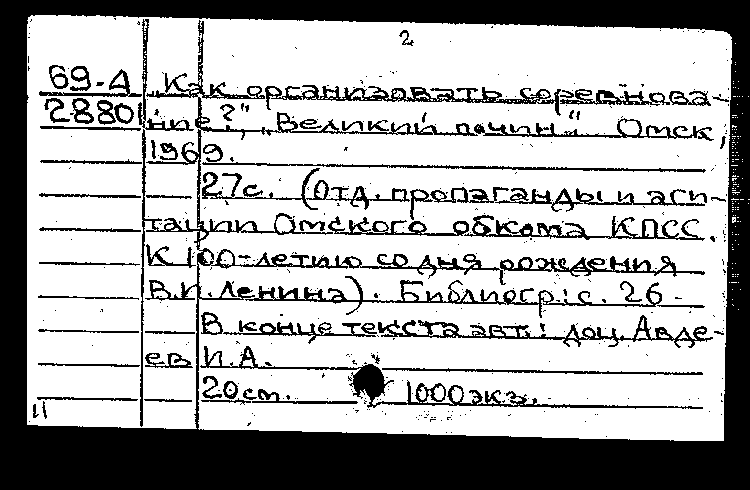 2
69-Д „Как организовать соревнова-
28801 ние?", „Великий почин". Омск,
1969.
27с. (Отд. пропаганды и аги-
тации Омского обкома КПСС.
К 100-летию со дня рождения
В.И. Ленина). Библиогр: с. 26-
В конце текста авт.: доц. Авде-
ев И.А.
20 см. 1000 экз.
11